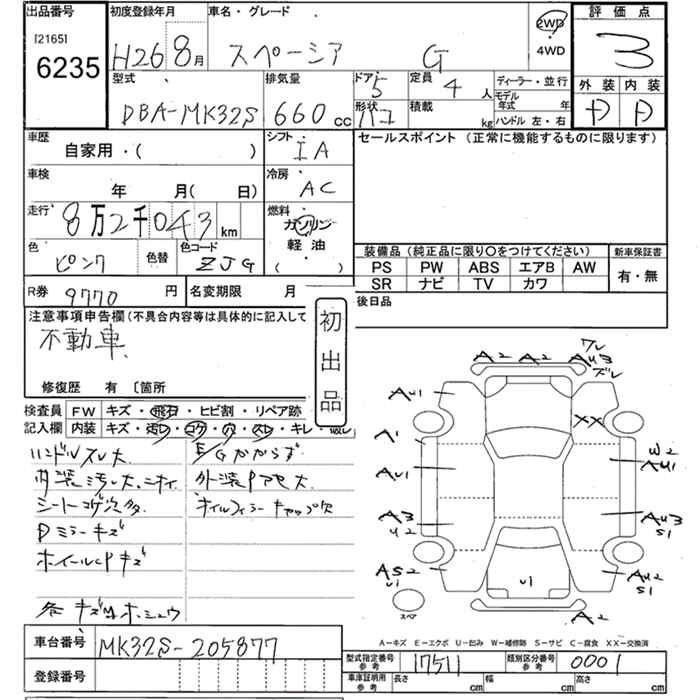 出品番号 初度登録年月 車名・グレード 2WD 4WD 評価点
[2165]
6235 H26 8月 スペーシア G 3
型式 排気量 ドア 5 定員 4人 ディーラー・並行 外装 内装
DBA-MK32S 660cc 形状 ハコ 積載 kg モデル年式 年 ハンドル 左・右 D D
車歴 自家用・( ) シフト IA セールスポイント(正常に機能するものに限ります)
車検 年 月( 日) 冷房 AC
走行 8万2千043km 燃料 ガソリン 軽油 ( )
色 ピンク 色替 色コード ZJG
装備品(純正品に限り○をつけてください) 新車保証書
PS PW ABS エアB AW 有・無
SR ナビ TV カワ
R券 9770円 名変期限 月 後日品
注意事項申告欄(不具合内容等は具体的に記入して 初出品
不動車
修復歴 有 〔箇所
検査員記入欄 FW キズ・飛石・ヒビ割・リペア跡
内装 キズ・汚レ・コゲ・穴・スレ・キレ・破レ
ハンドルスレ大 E/Gかからず
内装汚レ大、ニオイ 外装Pアセ大
シートコゲ穴多 オイルフィラーキャップ欠
Dミラーキズ
ホイールCPキズ
各キズ凹、ホシュウ
A2 A2 ワレ AU3 ズレ
AU1 XX
A1 W2 AU1
AU1
A3 U2 AU3 S1
AS2 U1 U1 AU2 S1
スペア A2
A-キズ E-エクボ U-凹み W-補修跡 S-サビ C-腐食 XX-交換済
車台番号 MK32S-205877
型式指定番号 参考 17511 類別区分番号 参考 0001
登録番号 車庫証明用 参考 長さ cm 幅 cm 高さ cm